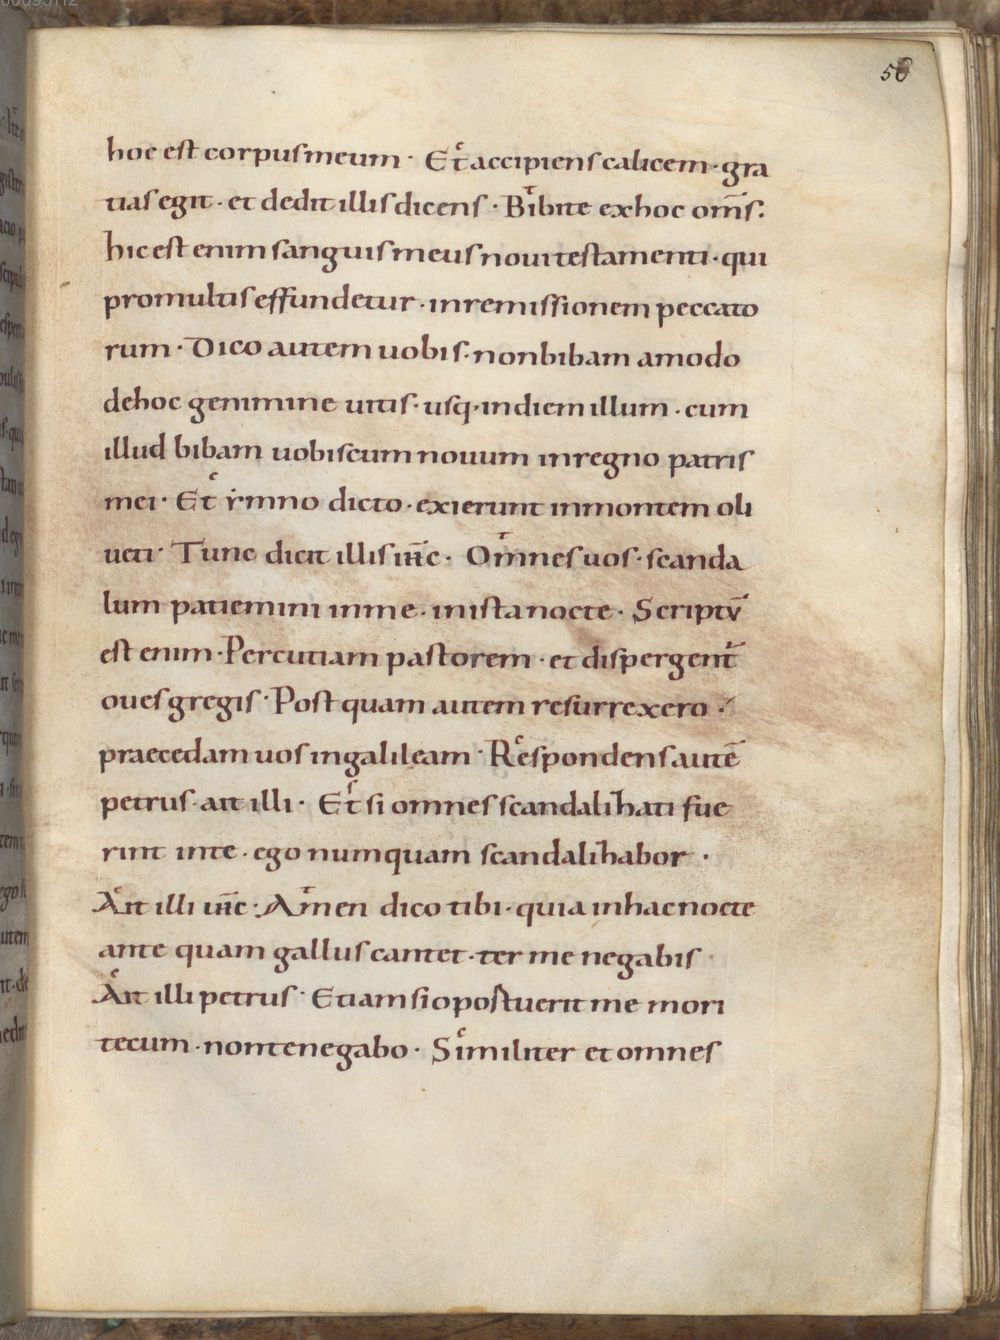 56
hoc est corpus meum · Et accipiens calicem · gra
tias egit · et dedit illis dicens · Bibite ex hoc om̅s ·
hic est enim sanguis meus noui testamenti · qui
pro multis effundetur · in remissionem peccato
rum · Dico autem uobis · non bibam amodo
de hoc genimine uitis · usq · in diem illum · cum
illud bibam uobiscum nouum in regno patris
mei · Et ẏmno dicto · exierunt in montem oli
ueti · Tunc dicit illis ih̅c · Omnes uos · scanda
lum patiemini in me · in ista nocte · Scriptu̅
est enim · Percutiam pastorem · et dispergent̅
oues gregis · Post quam autem resurrexero ·
praecedam uos in galileam · Respondens aute̅
petrus · ait illi · Et si omnes scandalihati fue
rint in te · ego numquam scandalihabor ·
Ait illi ih̅c · Amen dico tibi · quia in hac nocte
ante quam gallus cantet · ter me negabis ·
Ait illi petrus · Etiam si opostuerit me mori
tecum · non te negabo · Similiter et omnes